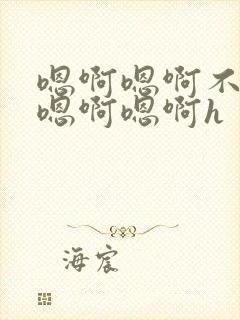 嗯啊嗯啊不
嗯啊嗯啊h
海宸